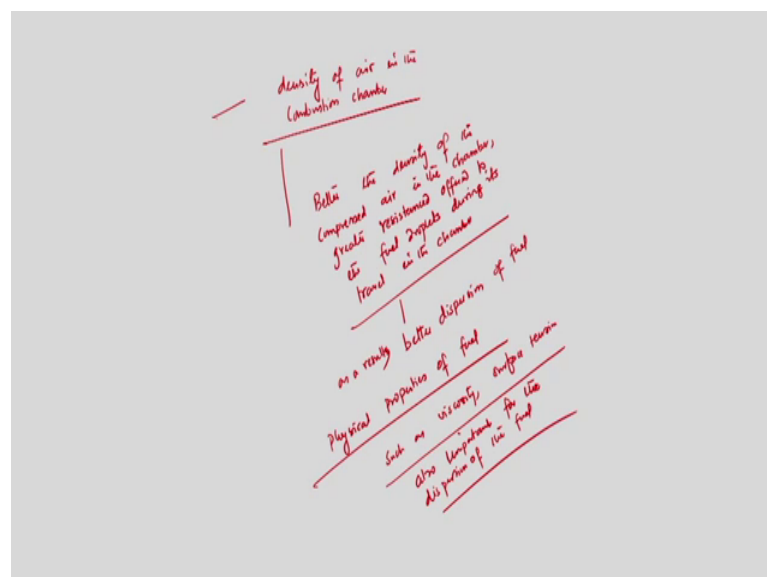 density of air in the
Combustion chamber
Better the density of the
compressed air in the chamber,
greater resistance offered to
the fuel droplets during its
travel in the chamber
as a result, better dispersion of fuel
Physical properties of fuel
Such as viscosity, surface tension
also important for the
dispersion of the fuel